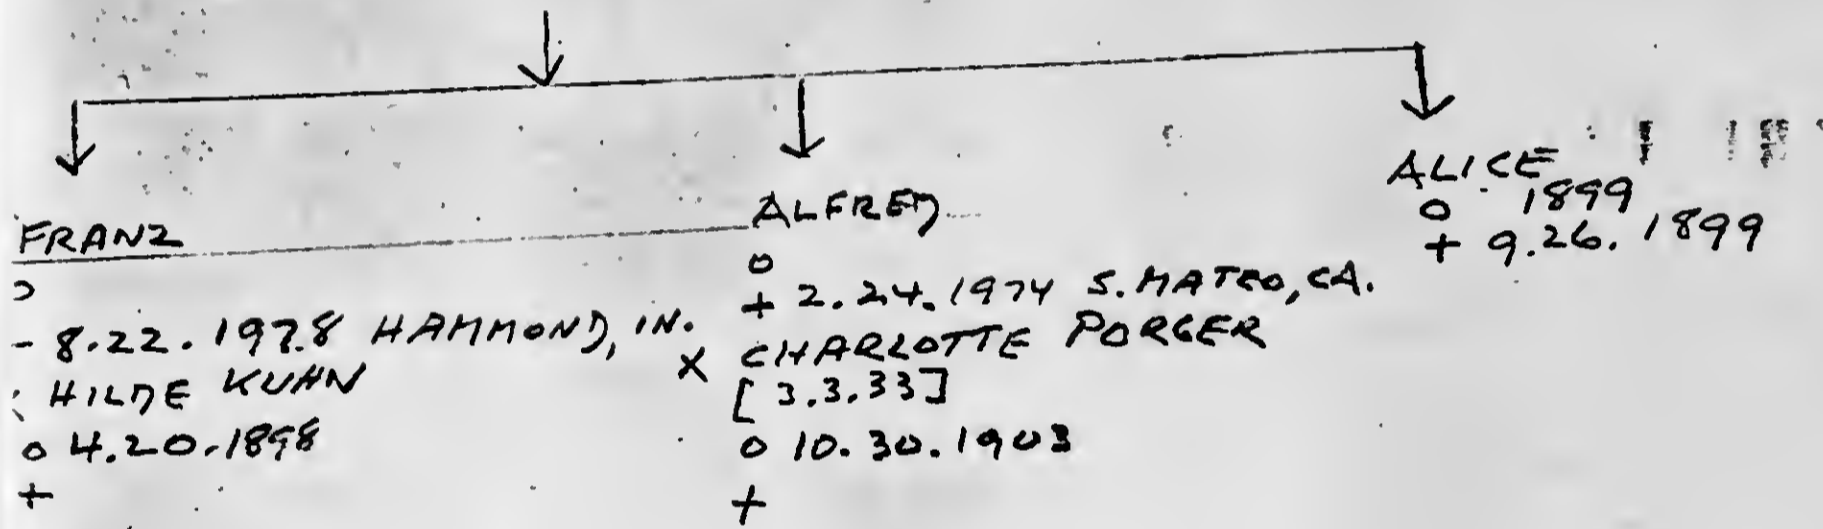 FRANZ
o
- 8.22.1978 HAMMOND, IN.
: HILDE KUHN
o 4.20.1898
+
ALFRED
o
+ 2.24.1974 S. MATEO, CA.
x CHARLOTTE PORGER
[3.3.33]
o 10.30.1903
+
ALICE
o 1899
+ 9.26.1899